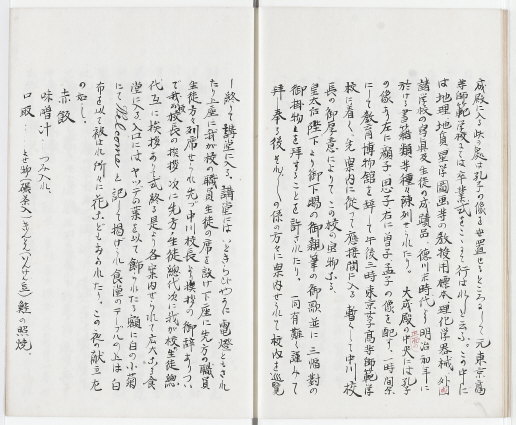 成殿に入る此の処は孔子の像を安置せるところにして元東京高
等師範学校にては卒業式をこゝにて行はれしと云ふ。この中に
は地理地質星学図画等の教授用標本理化学器械 外国
諸学校の用具及生徒の成績品 徳川氏時代より明治初年に
於ける書籍類等種々陳列せられたり。大成殿の中央には孔子
の像あり左に顔子思子右に曽子孟子の像を配す 一時間余
にして教育博物館を辞して午後三時東京女子高等師範学
校に着く、先案内に従って応接間に入る 暫くして中川校
長の御厚意によりてこの校の宝物なる
皇太后陛下より御下賜の御親筆の御歌並に三幅対の
御掛物とを拝することを許されたり、一同有難く謹みて
拝し奉る後それ〲の係の方々に案内せられて校内を巡覧
し終りて講堂に入る。講堂にはときならぬに電燈ともされ
たり上座に我が校の職員生徒の席を設け下座に先方の職員
生徒方々列席せられ先づ中川校長の挨拶の御辞ありつい
で我校長の挨拶 次に先方の生徒総代次に我が校生徒総
代互に挨拶ありて式終る是より各案内せられて広大なる食
堂に入る入口にはヤツデの葉を以て飾られたる額に白の小菊
にてWelcomeと記して掲げられ食堂のテーブルの上は白
布を以て被はれ所々に花などもおかれたり。この夜の献立左
の如し。
赤飯
味噌汁 つみ入れ
口取
鮭の照焼